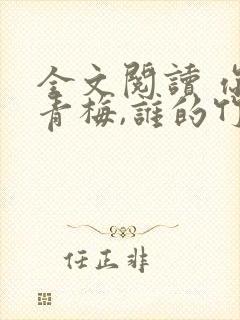 全文閱讀
青梅,誰的
任正非